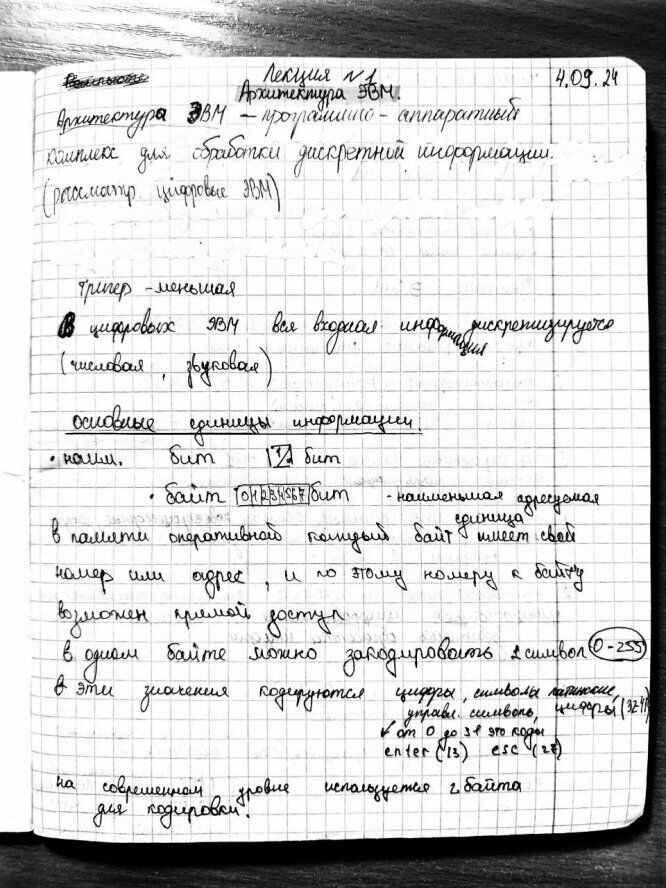 Лекция №1 4.09.24
Архитектура ЭВМ.
Архитектура ЭВМ – программно – аппаратный
комплекс для обработки дискретной информации.
(рассматр. цифровые ЭВМ)
тригер – меньшая
В цифровых ЭВМ вся входная информация дискретизируется
(числовая, звуковая)
основные единицы информации.
• наим. бит бит
• байт 01234567 бит – наименьшая адресуемая
единица
в памяти оперативной каждый байт имеет свой
номер или адрес, и по этому номеру к байту
возможен прямой доступ
в одном байте можно закодировать 1 символ 0-255
в эти значения кодируются цифры, символы латинские,
управл. символы, цифры
от 0 до 31 это коды
enter (13) esc (27)
на современном уровне используется 2 байта
для кодировки.